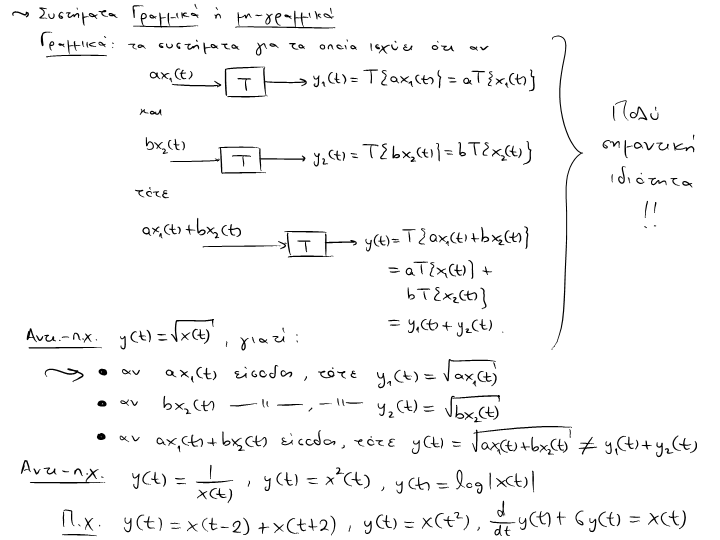 ~> Συστήματα Γραμμικά ή μη-γραμμικά
Γραμμικά: τα συστήματα για τα οποία ισχύει ότι αν
ax₁(t) → T → y₁(t) = T{ax₁(t)} = aT{x₁(t)}
και
bx₂(t) → T → y₂(t) = T{bx₂(t)} = bT{x₂(t)}
τότε
ax₁(t) + bx₂(t) → T → y(t) = T{ax₁(t) + bx₂(t)}
= aT{x₁(t)} +
bT{x₂(t)}
= y₁(t) + y₂(t).
Πολύ
σημαντική
ιδιότητα
!!
Αντι-π.χ. y(t) = √x(t), γιατί:
~> • αν ax₁(t) είσοδος, τότε y₁(t) = √ax₁(t)
• αν bx₂(t) —"—, —"— y₂(t) = √bx₂(t)
• αν ax₁(t) + bx₂(t) είσοδος, τότε y(t) = √ax₁(t) + bx₂(t) ≠ y₁(t) + y₂(t)
Αντι-π.χ. y(t) = 1/x(t), y(t) = x²(t), y(t) = log|x(t)|
Π.χ. y(t) = x(t-2) + x(t+2), y(t) = x(t²), d/dt y(t) + 6y(t) = x(t)